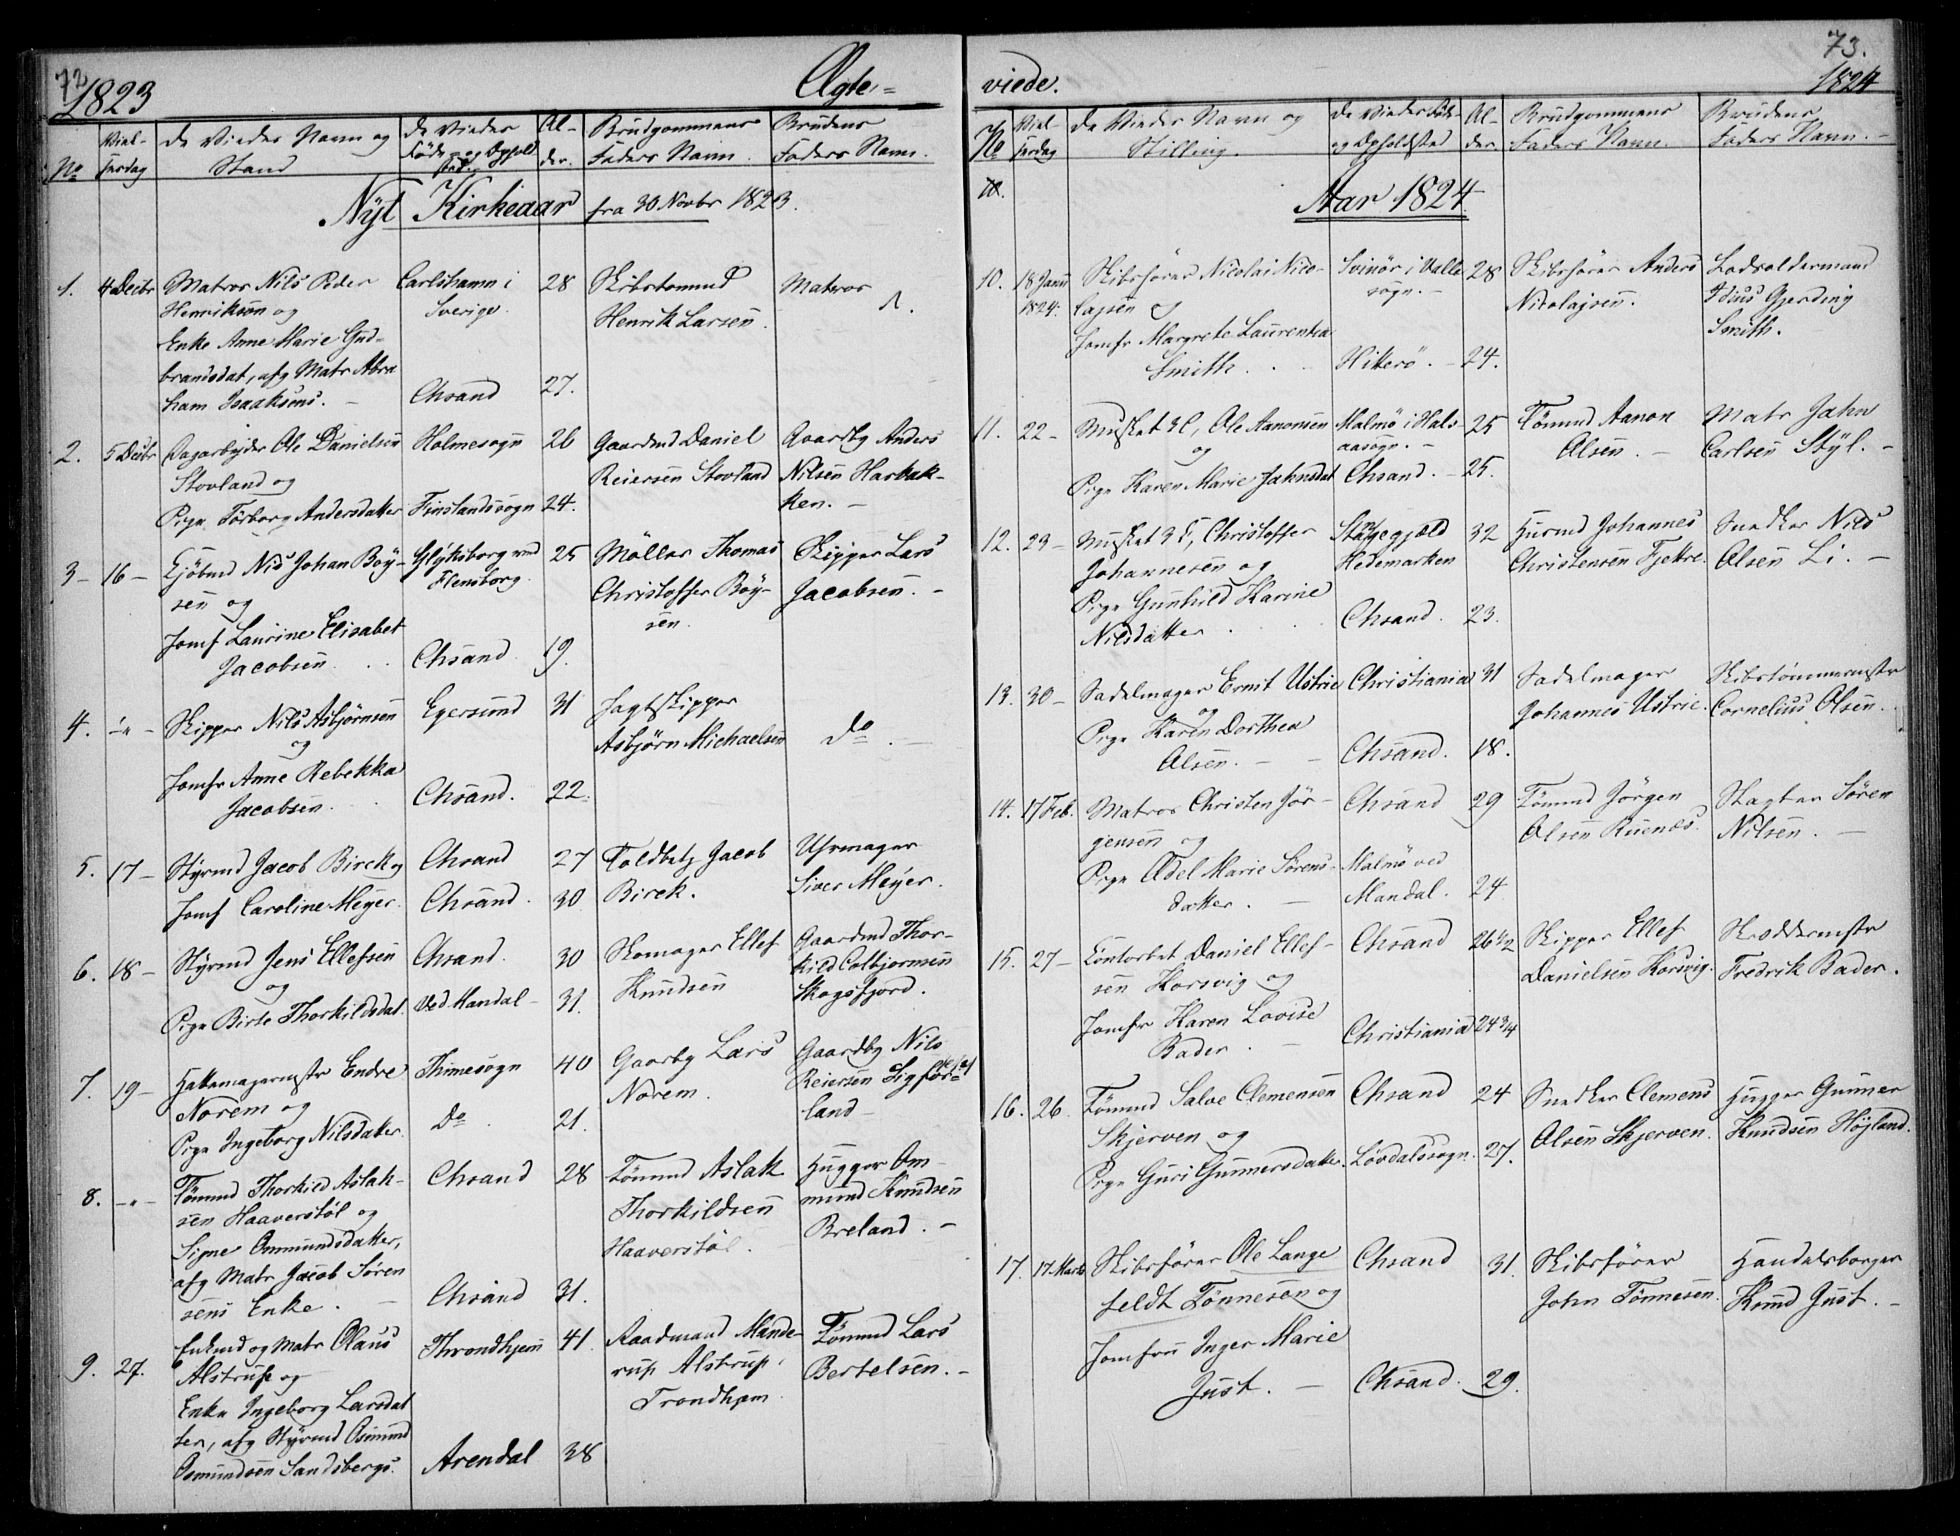 72
1823
Ægte=
No
Viel-
sesdag
De Viedes Navn og
Stand
De Viedes
Føde- og Ophold
sted
Al-
der.
Brudgommens
Faders Navn.
Brudens
Faders Navn.
Nyt Kirkeaar fra 30 Novbr 1823.
1.
4 Decbr
Matros Nils Peder
Henriksen og
Enke Anne Marie Gud-
brandsdat, afg Matr Abra
ham Isaaksens.
Carlshamn i
Sverige.
Chsand
28
27.
Skibstømmd
Henrik Larsen.
Matros
N.
2.
5 Decbr
Dagarbejder Ole Danielsen
Stovland og
Pige Tørborg Andersdatter
Holmesogn
Finslandssogn
26
24.
Gaardmd Daniel
Reiersen Stovland
Gaardbg Anders
Nilsen Harbak-
ken.
3 –
16 –
Kjøbmd Nis Johan Boy-
sen og
Jomf Laurine Elisabet
Jacobsen.
Glyksborg ved
Flensborg.
Chsand
25
19.
Møller Thomas
Christoffer Boy-
sen.
Skipper Lars
Jacobsen.
4.
–"–
Skipper Nils Asbjørnsen
og
Jomfr Anne Rebekka
Jacobsen.
Egersund
Chsand.
31
22.
Jagtskipper
Asbjørn Michaelsen
Do
5.
17 –
Styrmd Jacob Birck og
Jomf Caroline Meyer.
Chsand
Chsand.
27
30
Toldbetj Jacob
Birck.
Uhrmager
Siver Meyer.
6.
18 –
Styrmd Jens Ellefsen
og
Pige Birte Thorkildsdat.
Chsand.
Ved Mandal –
30
31.
Skomager Ellef
Knudsen
Gaardmd Thor-
kild Colbjørnsen
Skogsfjord.
7.
19 –
Hattemagermstr Endre
Norem og
Pige Ingeborg Nilsdatter.
Thimesogn
Do
40
21.
Gaardbg Lars
Norem.
Gaardbg Nils
Reiersen Ligfor-
land –
8.
–"–
Tømmd Thorkild Aslak-
sen Haaverstøl og
Signe Ommundsdatter,
afg Matr Jacob Søren
sens Enke.
Chsand
Chsand
28
31.
Tømmd Aslak
Thorkildsen
Haaverstøl.
Hugger Om-
mund Knudsen
Breland.
9.
27.
Enkmd og Matr Olaus
Alstrup og
Enke Ingeborg Larsdat
ter, afg Styrmd Osmund
Osmundsen Sandsbergs.
Throndhjem
Arendal
41.
38
Raadmand Mande-
rup Alstrup,
Trondhjem
Tømmd Lars
Bertelsen.
73.
1824
viede.
No
Viel-
sesdag
De Viedes Navn og
Stilling.
De Viedes Føde-
og Opholdsted
Al-
der
Brudgommens
Faders Navn.
Brudens
Faders Navn.
10.
Aar 1824
10.
18 Janu
1824.
Skibsfører Nicolai Nico-
lajsen og
Jomfr Margrete Laurentia
Smith.
Svinør i Valle
sogn.
Hiterø.
28
24.
Skibsfører Anders
Nicolajsen.
Lodsoldermand
Idius Gjerding
Smith.
11.
22 –
Ole Aanonsen
og
Pige Karen Marie Jahnsdat
Malmø i Hals
aasogn.
Chsand.
25
25.
Tømmd Aanon
Olsen.
Matr Jahn
Carlsen Styl.
12.
23 –
Christoffer
Johannesen og
Pige Gunhild Karine
Nilsdatter
Stangegjæld
Hedemarken
Chsand.
32
23.
Husmd Johannes
Christensen Fjekre.
Snedker Nils
Olsen Li.
13.
30 –
Sadelmager Ernst Ustrie
og
Pige Karen Dorthea
Olsen.
Christiania
Chsand.
31
18.
Sadelmager
Johannes Ustrie.
Skibstømmermstr
Cornelius Olsen.
14.
17 Feb.
Matros Christen Jør-
gensen og
Pige Edel Marie Sørens-
datter.
Chsand
Malmø ved
Mandal.
29
24
Tømmd Jørgen
Olsen Ruenæs.
Slagter Søren
Nilsen.
15.
27 –
Daniel Ellef-
sen Korsvig og
Jomfr Karen Lovise
Bader.
Chsand
Christiania
26 1/2
24 3/4
Skipper Ellef
Danielsen Korsvig.
Skreddermstr
Fredrik Bader.
16.
26.
Tømmd Salve Clemensen
Skjerven og
Pige Guri Gunnersdatter.
Chsand
Løvdalssogn.
24
27.
Snedker Clemens
Olsen Skjerven.
Hugger Gunner
Knudsen Højland.
17.
17 Marts
Skibsfører Ole Lange
feldt Tønnesen og
Jomfru Inger Marie
Just.
Chsand
Chsand.
31.
29.
Skibsfører
John Tønnesen.
Handelsborger
Knud Just.